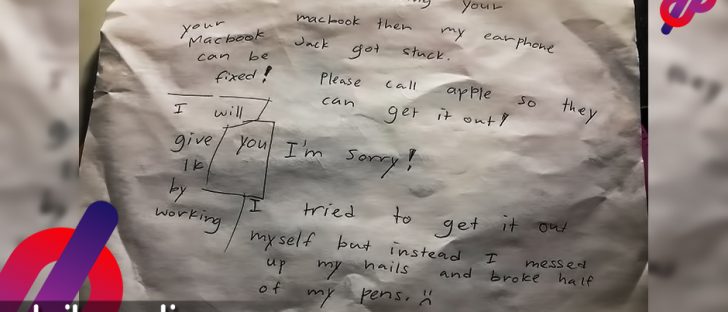 your
macbook then my earphone
Jack got stuck.
Please call apple so they
can get it out!
I'm sorry!
I tried to get it out
myself but instead I messed
up my nails and broke half
of my pens.
your
Macbook
can be
fixed!
I will
give you
1k
by
working